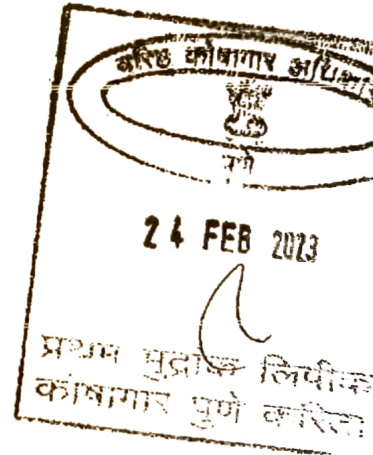 वरिष्ठ कोषागार अधिकारी
पुणे
24 FEB 2023
प्रथम मुद्रांक लिपीक
कोषागार पुणे करिता